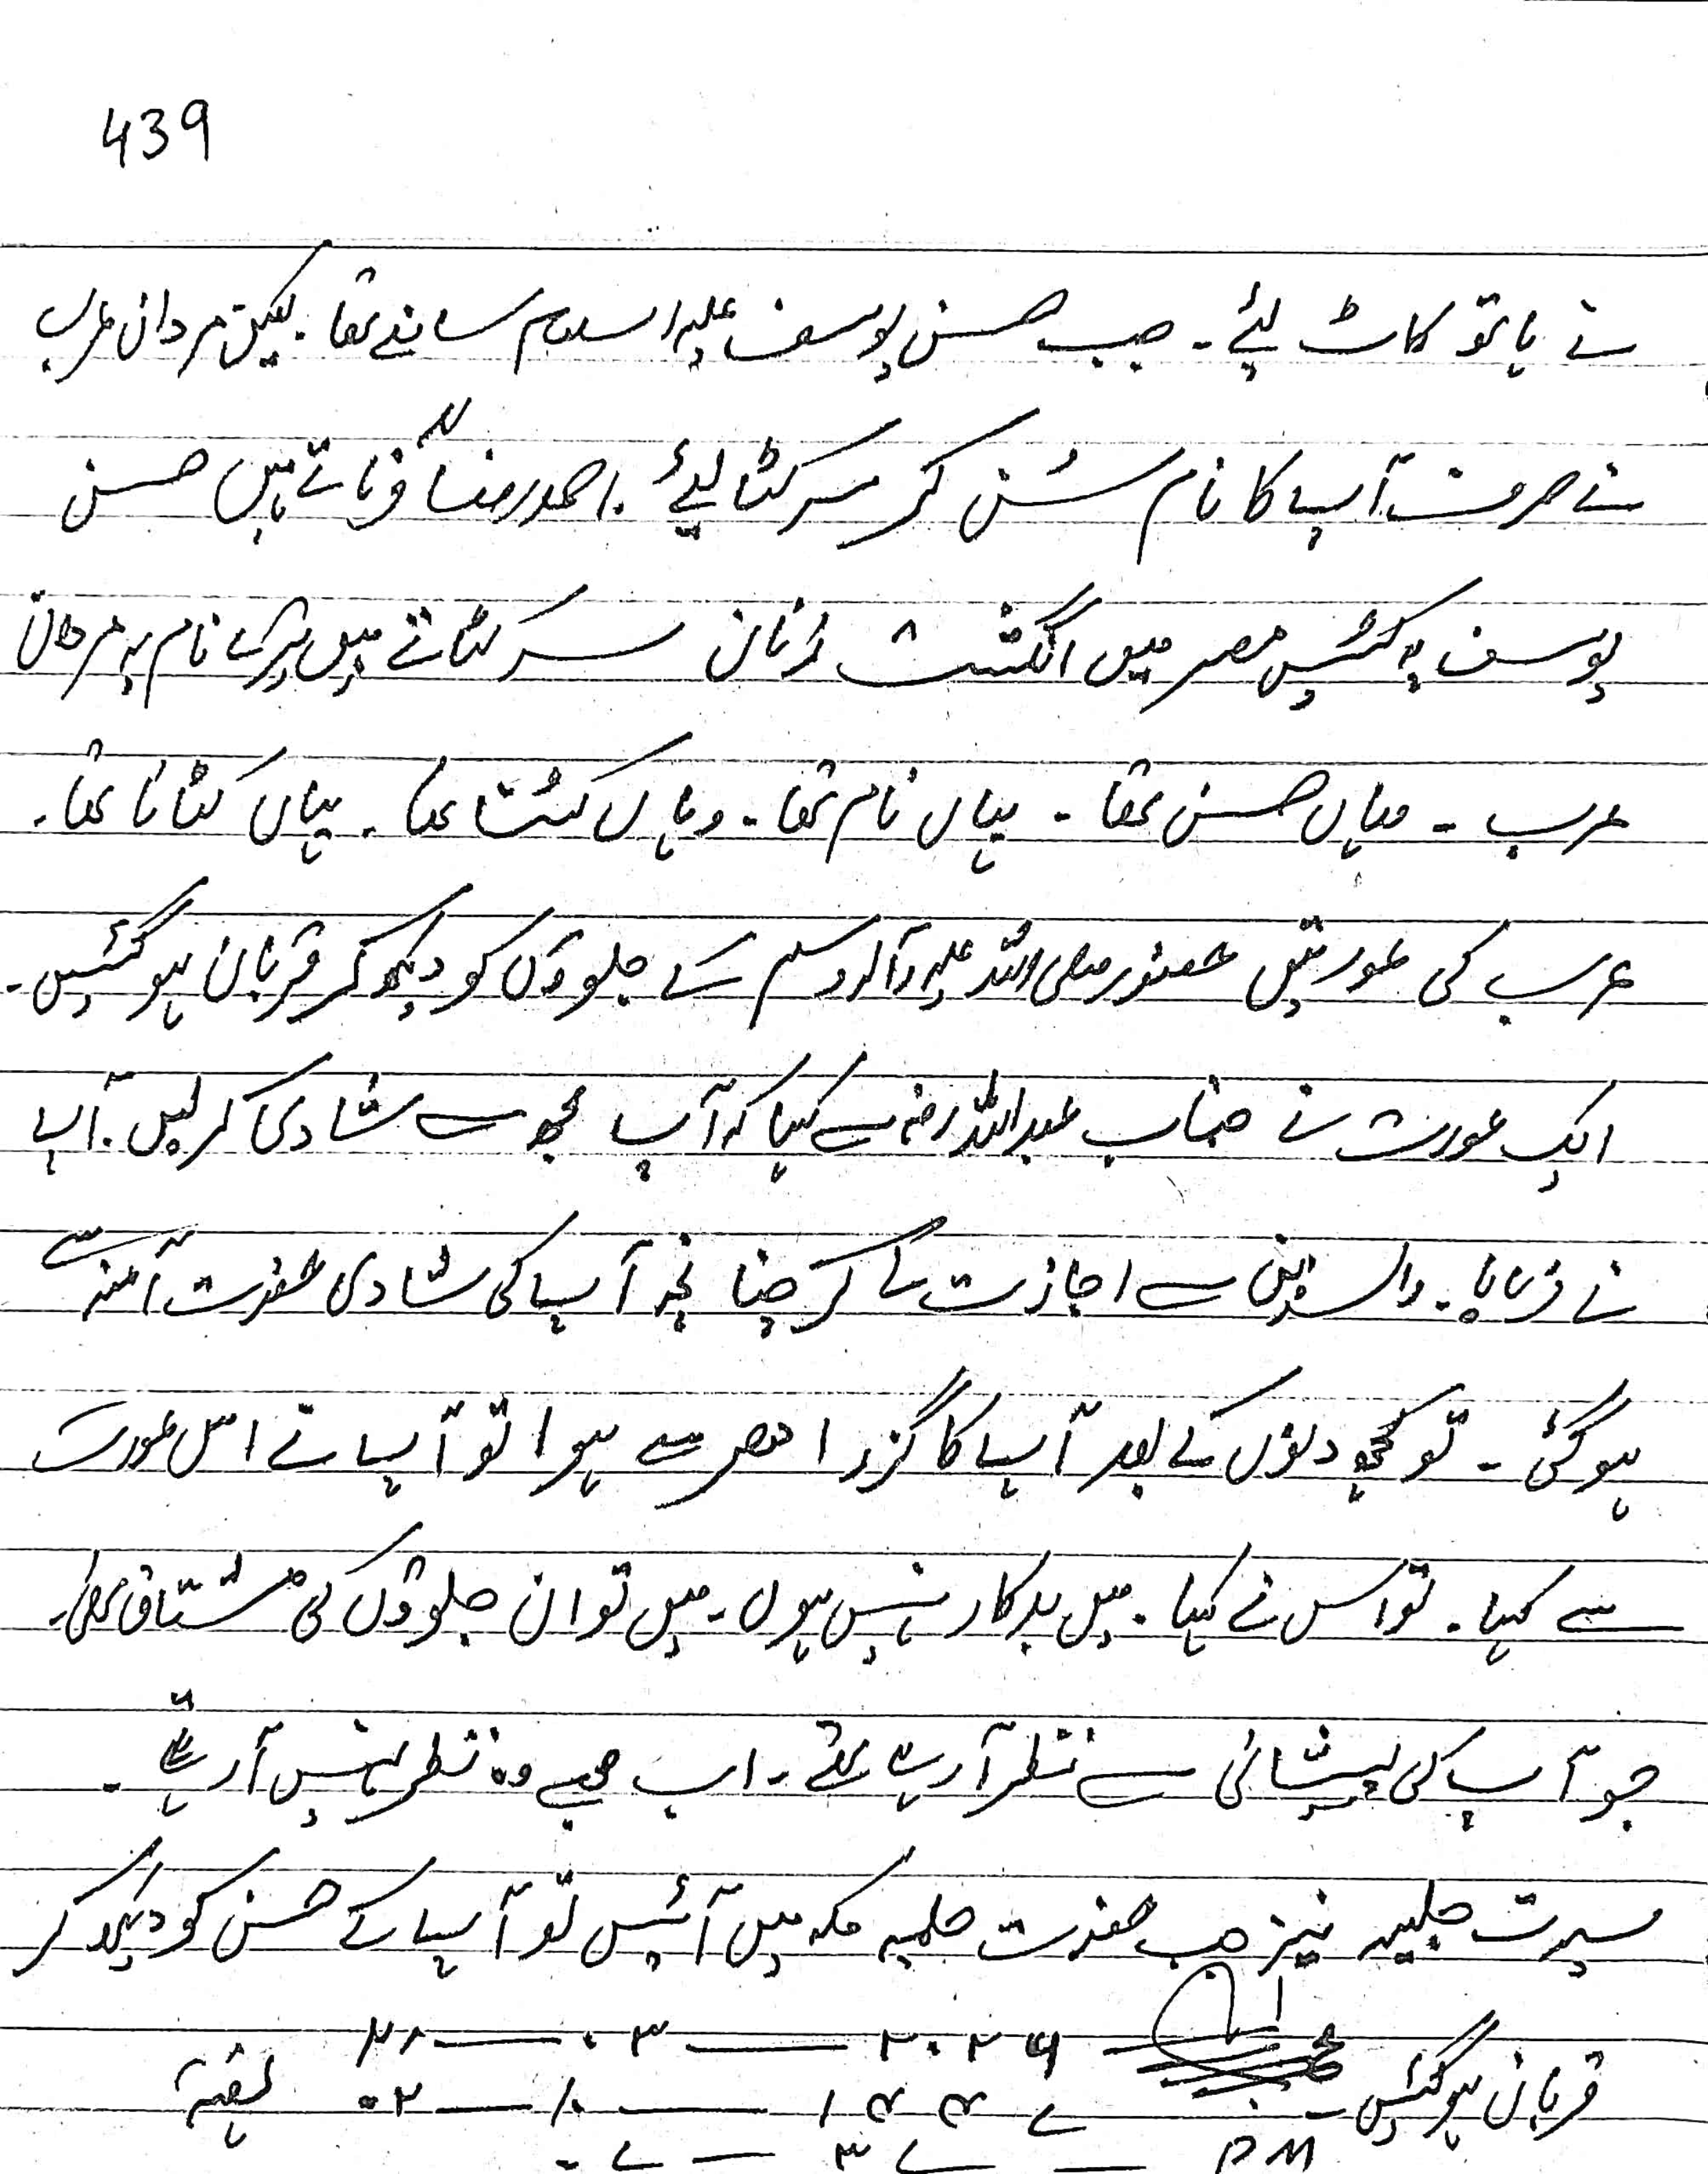 439
نے ہاتھ کاٹ لیئے۔ جب حسن یوسف علیہ اسلام سامنے تھا۔ لیکن مردان عرب
نے صرف آپ کا نام سُن کر سر کٹا لیئے۔ احمد رضاؒ فرماتے ہیں حسن
یوسف پہ کٹیں مصر میں انگشت زنان سر کٹاتے ہیں تیرے نام پہ مردان
عرب ۔ وہاں حسن تھا ۔ یہاں نام تھا۔ وہاں کٹنا تھا۔ یہاں کٹانا تھا۔
عرب کی عورتیں حضور صلی اللہ علیہ وآلہ وسلم کے جلوؤں کو دیکھ کر قربان ہو گئیں۔
ایک عورت نے جناب عبداللہ رضہ سے کہا کہ آپ مجھ سے شادی کر لیں۔ آپ
نے فرمایا۔ والدین سے اجازت لے کر چنانچہ آپ کی شادی حضرت آمنہ سے
ہو گئی ۔ تو کچھ دنوں کے بعد آپ کا گزر ادھر سے ہوا تو آپ نے اس عورت
سے کہا۔ تو اس نے کہا۔ میں بدکار نہیں ہوں۔ میں تو ان جلوؤں کی مشتاق تھی۔
جو آپ کی پیشانی سے نظر آ رہے تھے۔ اب مجھے وہ نظر نہیں آ رہے۔
سیرت حلبیہ نیز جب حضرت حلیمہ مکہ میں آئیں تو آپ کے حسن کو دیکھ کر
قربان ہو گئیں۔ ۲۰۲۶ — ۰۳ — ۲۸
۱۴۴۷ — ۱۰ — ۰۲ ہفتہ
PM